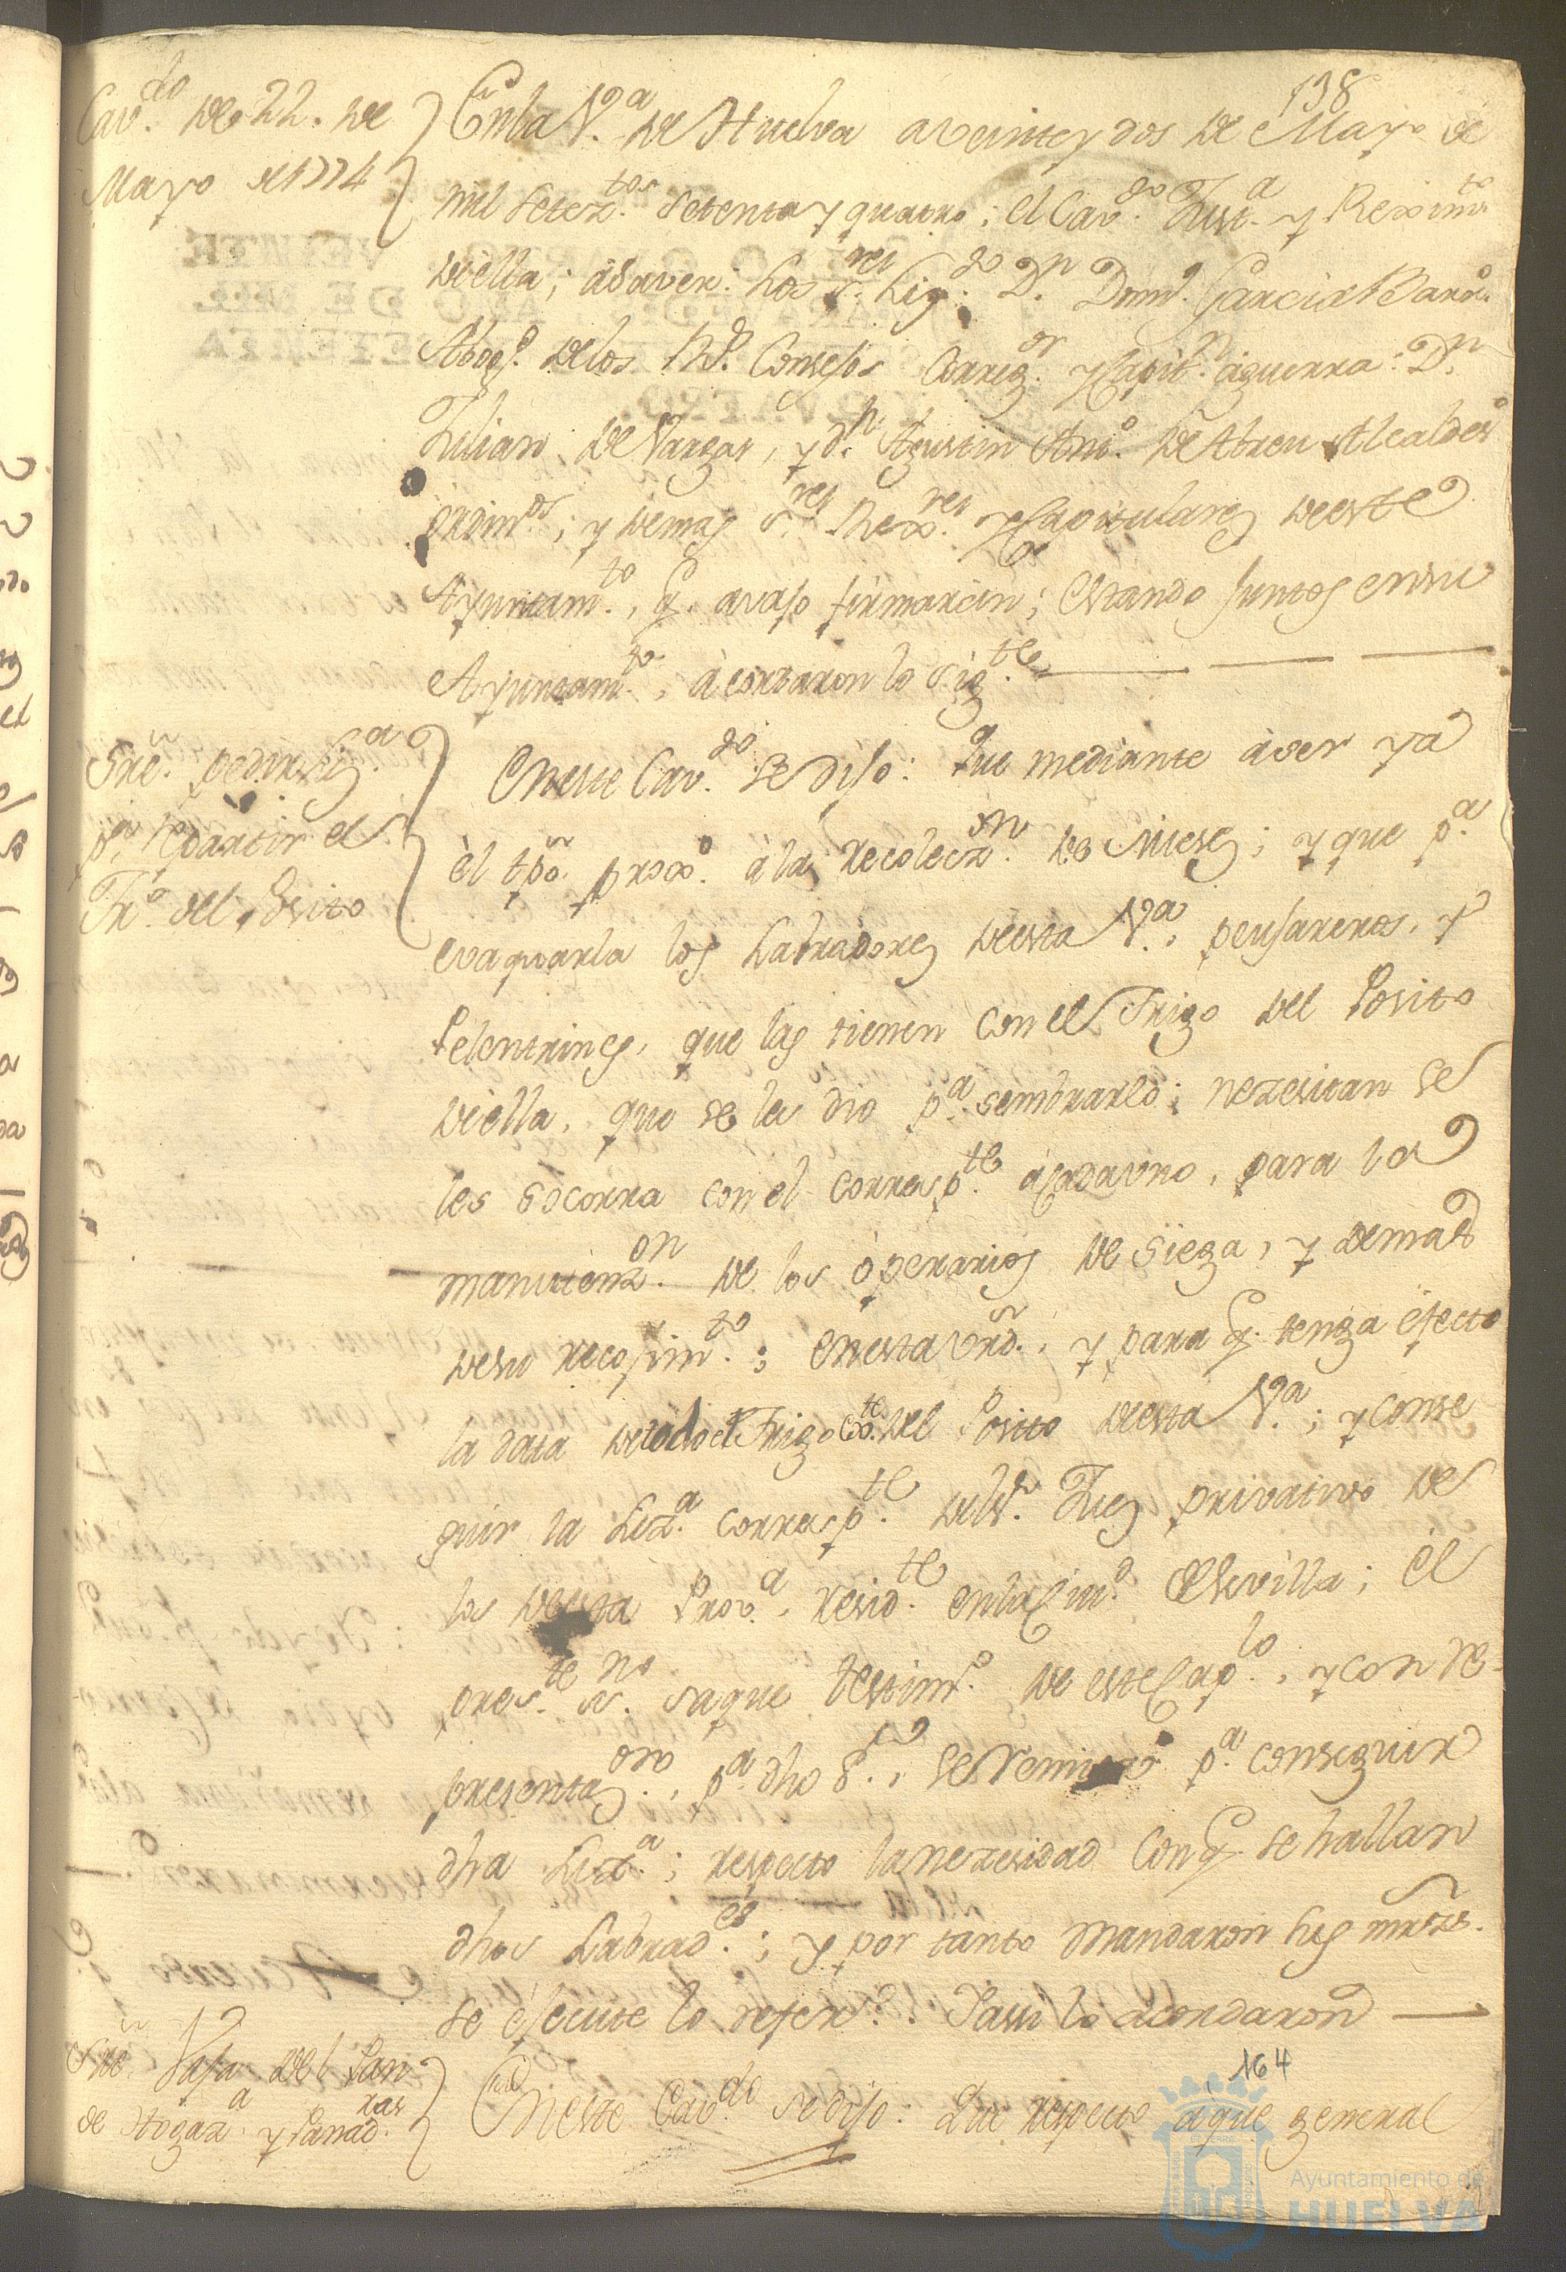 138
Cav.do de 22. de
Mayo de 1774
En la V.a de Huelva a veinte y dos de Mayo de
mil setez.tos setenta y quatro; el Cav.do Just.a y Reximto
de ella; à saver: Los S.res Liz.do D.n Dom.o Garcia Barr.o
Abog.o de los R.s Consejos Correg.or y Capit.n à guerra: D.n
Julian de Vargas, y d.n Agustin Ant.o de Abreu Alcaldes
ordin.os; y demas S.res Rex.res y Capitulares de este
Ayuntam.to, q. avajo firmaràn; Estando juntos en su
Ayuntam.to, àcordaron lo sig.te
Sre. pedir Liz.a
p.a repartir el
Tr.o del Posito
En este Cav.do se dijo: Que mediante à ser ya
èl tpõ. prox.o à la recolecz.on de Mieses; y que p.a
evaquarla los Labradores de esta V.a, peujareros, y
Pelentrines, que las tienen con el Trigo del Posito
de ella, que se les dio p.a sembrarlo; nezesitan se
les socorra con el corresp.te à cada uno, para la
manutenz.on de los òperarios de siega, y demas
de su recojim.to; en esta vrd.; y para q. tenga èfecto
la data de todo el Trigo del Posito de esta V.a; y conse
guir la Liz.a corresp.te del S.r Juez privativo de
los de esta Prov.a, resid.te en la Ciu.d de Sevilla; èl
pres.te ss.no saque testim.o de este Cap.lo, y con re-
presentaz.on, p.a dho S.r, se remita p.a conseguir
dha Liz.a; respecto la nezesidad con q. se hallan
dhos Labrad.es; y por tanto mandaron sus mrzds.
se èjecute lo refer.do. Y assi lo acordaron
Sre. Vaja del Pan
de Hogaz.a y Panad.ras
En este Cav.do se dijo: Que respecto à que general
164
Ayuntamiento de
HUELVA